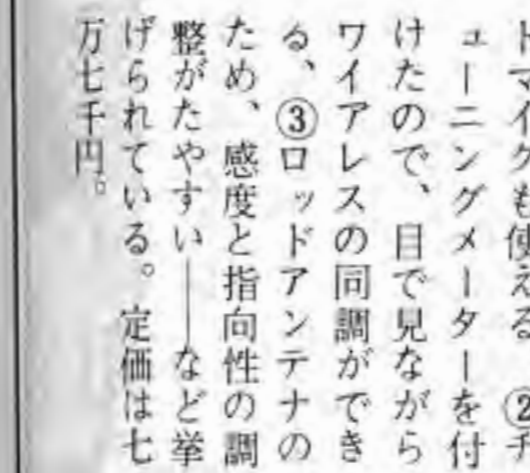 ドマイクも使える ②チ
ューニングメーターを付
けたので、目で見ながら
ワイアレスの同調ができ
る、③ロッドアンテナの
ため、感度と指向性の調
整がたやすい――など挙
げられている。定価は七
万七千円。